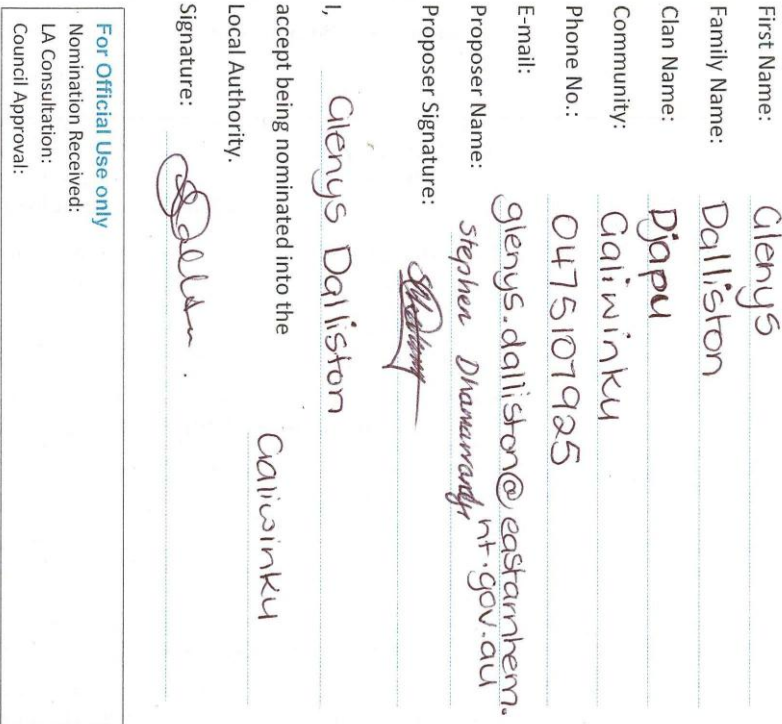 First Name: Glenys
Family Name: Dalliston
Clan Name: Djapu
Community: Galiwinku
Phone No.: 0475107925
E-mail: glenys.dalliston@eastarnhem.
nt.gov.au
Proposer Name: Stephen Dhamarrandji
Proposer Signature:
I, Glenys Dalliston
accept being nominated into the Galiwinku
Local Authority.
Signature:
For Official Use only
Nomination Received:
LA Consultation:
Council Approval: